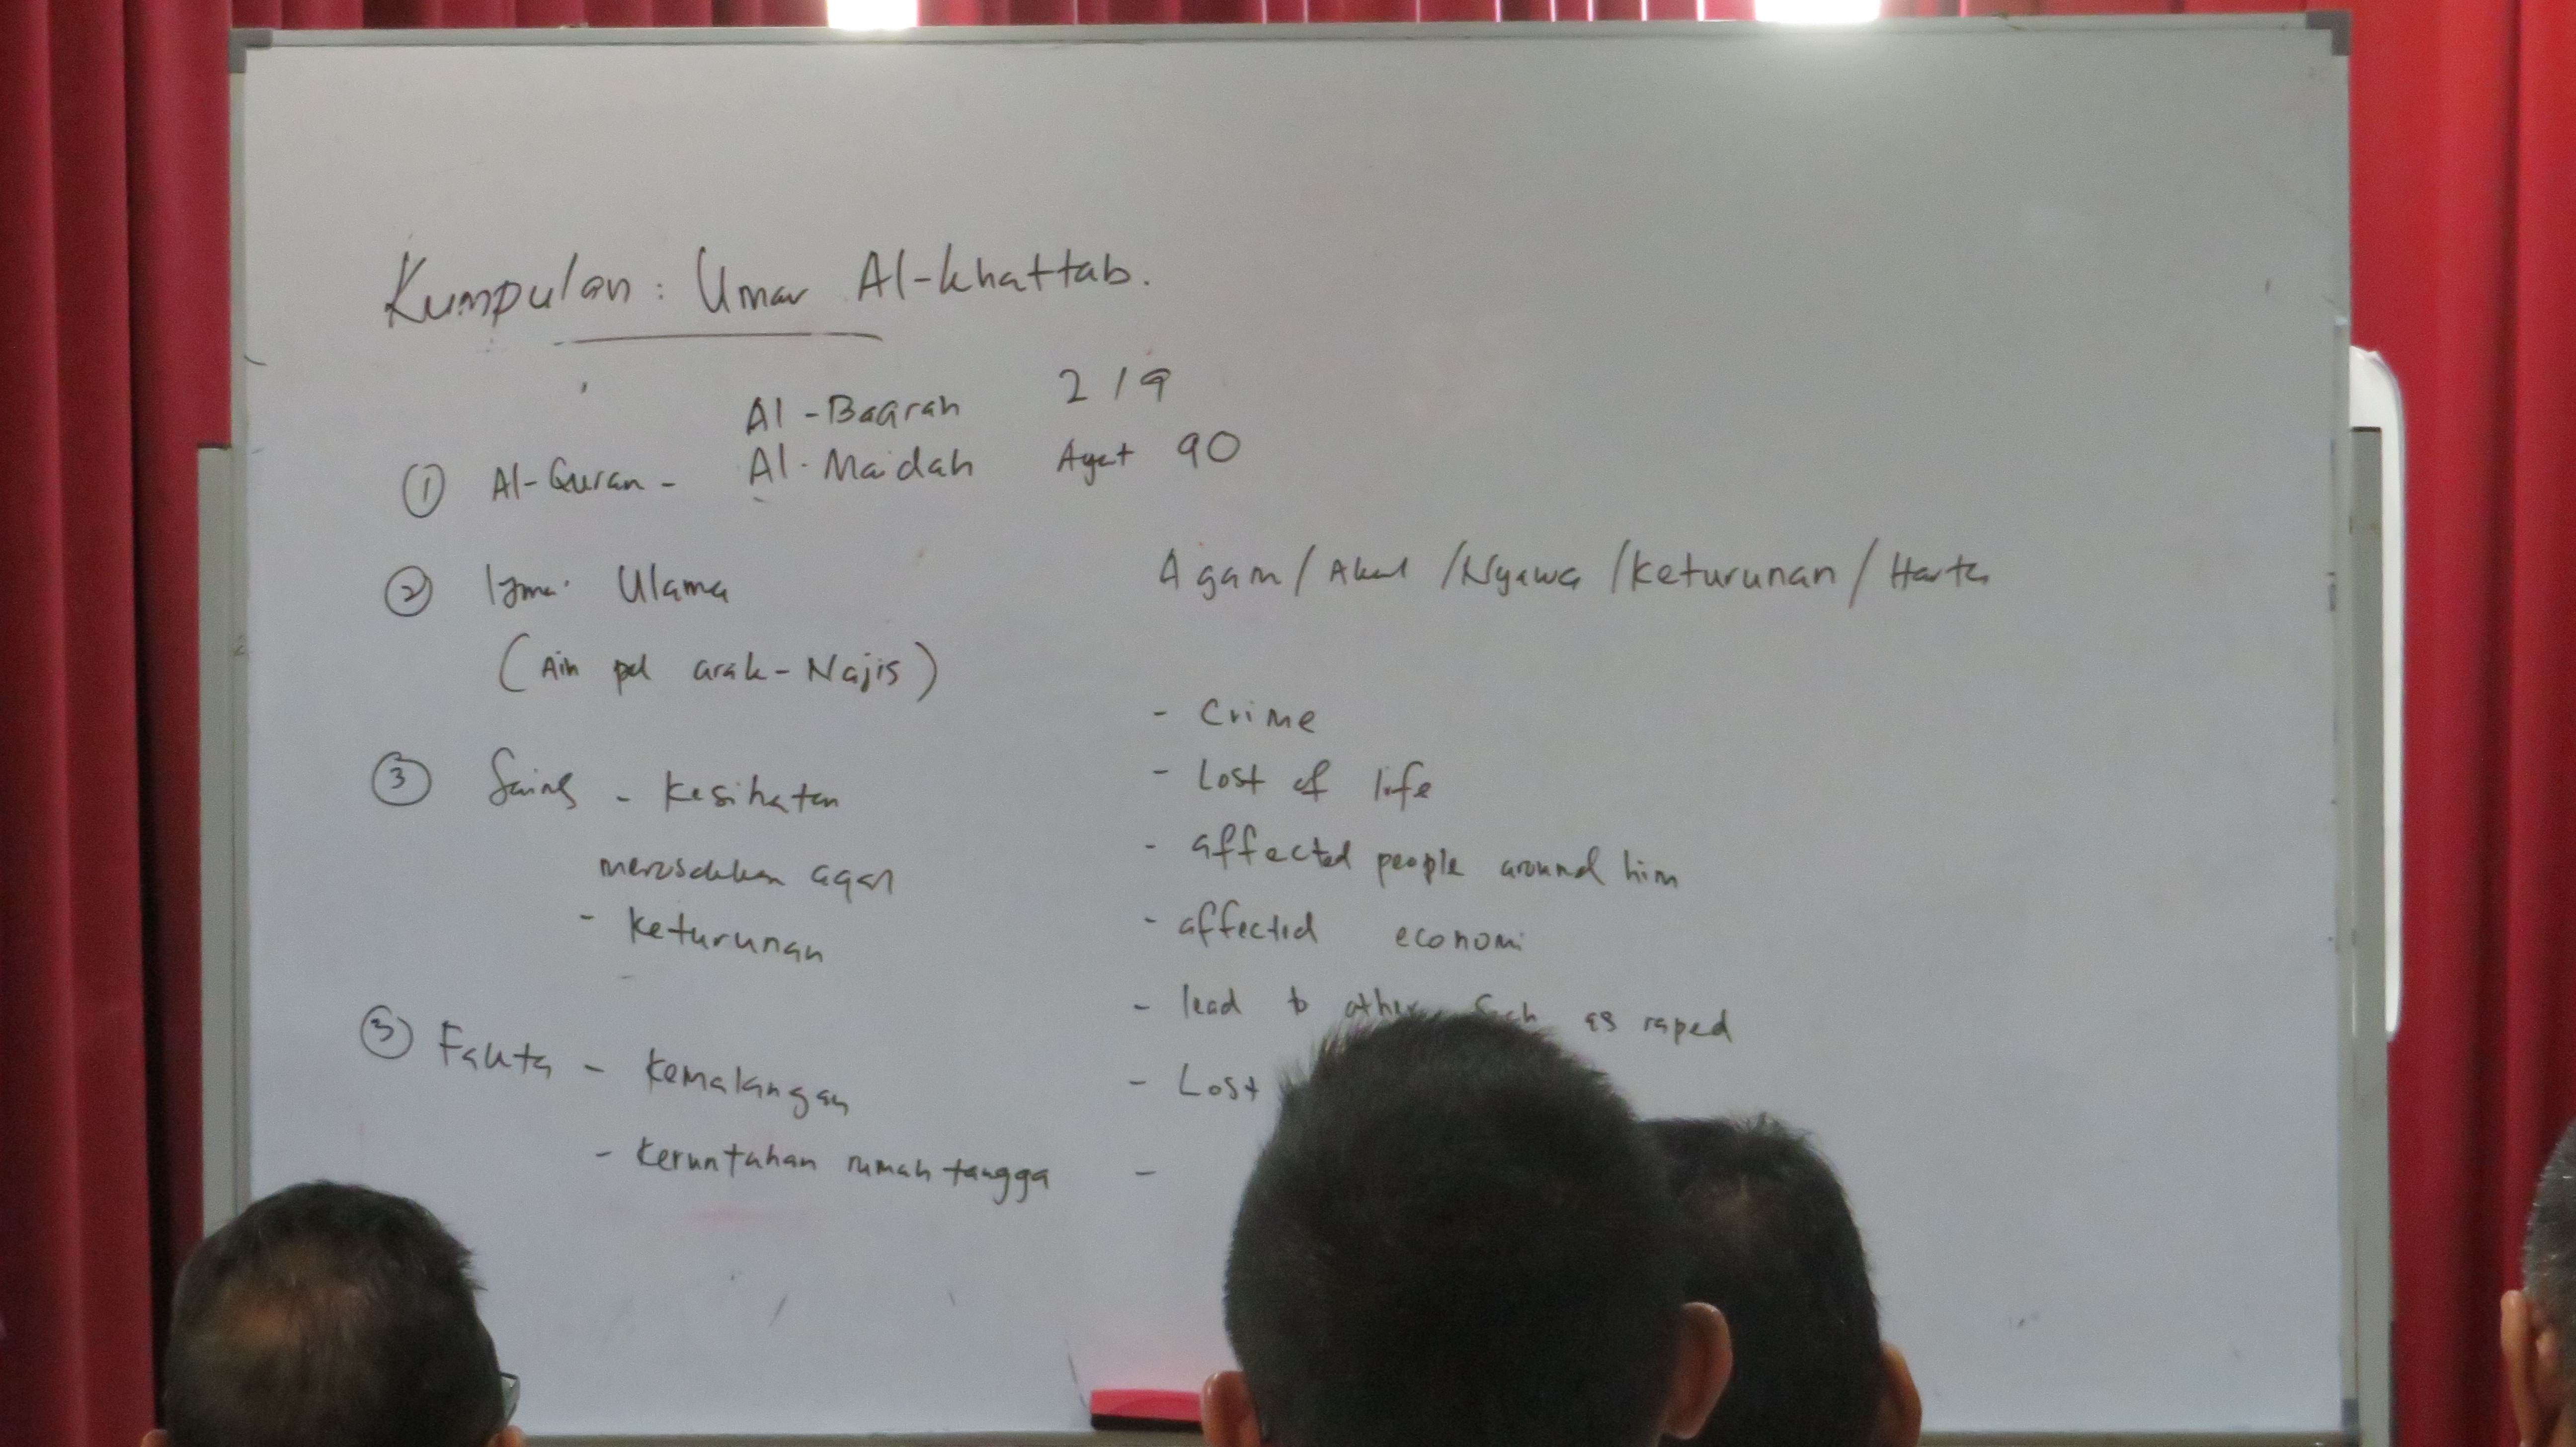 Kumpulan: Umar Al-khattab.
Al-Baqrah 219
① Al-Quran - Al-Maidah Ayat 90
② Ijma' Ulama
(Ain pd arak-Najis)
③ Sains - kesihatan
merosakkan aqal
- keturunan
③ Fakta - kemalangan
- keruntuhan rumah tangga
Agam/Akal/Nyawa/keturunan/Harta
- Crime
- Lost of life
- affected people around him
- affected economi
- lead to other such as raped
- Lost
-